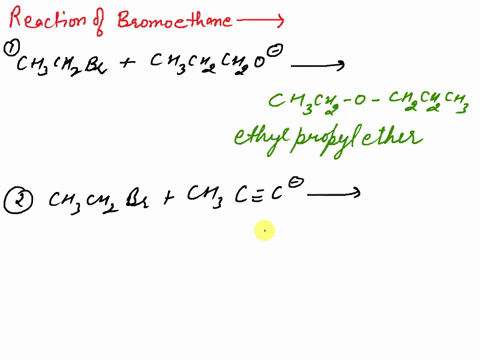 Reaction of Bromoethane ⟶
① CH₃CH₂Br + CH₃CH₂CH₂O⊖ ⟶
CH₃CH₂-O-CH₂CH₂CH₃
ethyl propyl ether
② CH₃CH₂Br + CH₃C≡C⊖ ⟶